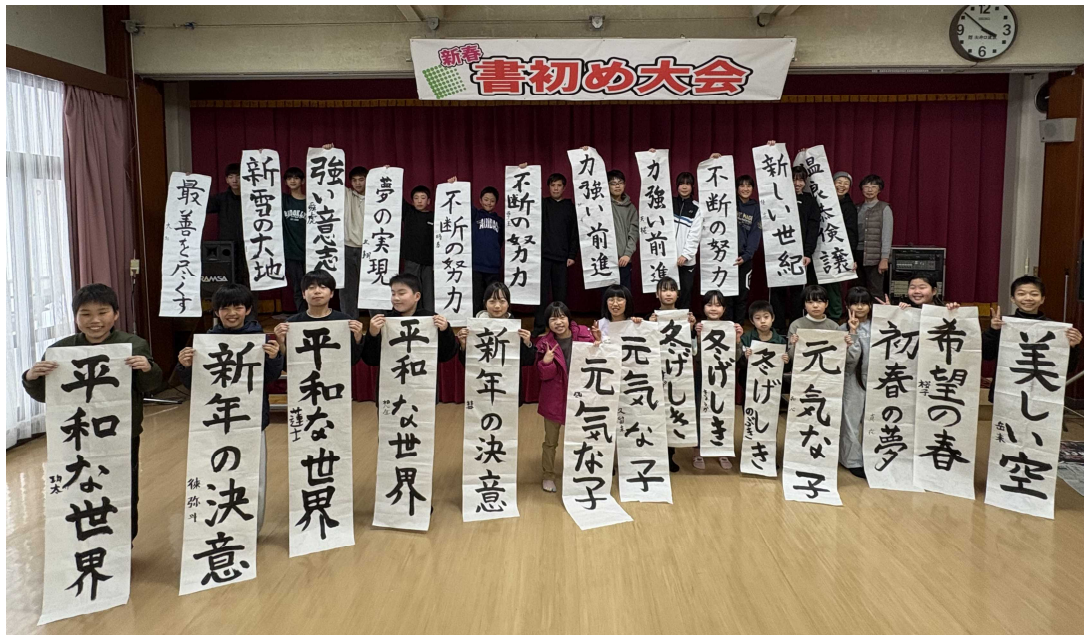 新春
書初め大会
最善を尽くす
新雪の大地
強い意志
夢の実現
不断の努力
不断の努力
力強い前進
力強い前進
不断の努力
新しい世紀
温良恭倹譲
RAMSA
平和な世界
功太
新年の決意
平和な世界
蓮士
平和な世界
新年の決意
元気な子
元気な子
冬げしき
冬げしき
冬げしき
のぶき
元気な子
初春の夢
希望の春
美しい空
岳来
12
3
6
9